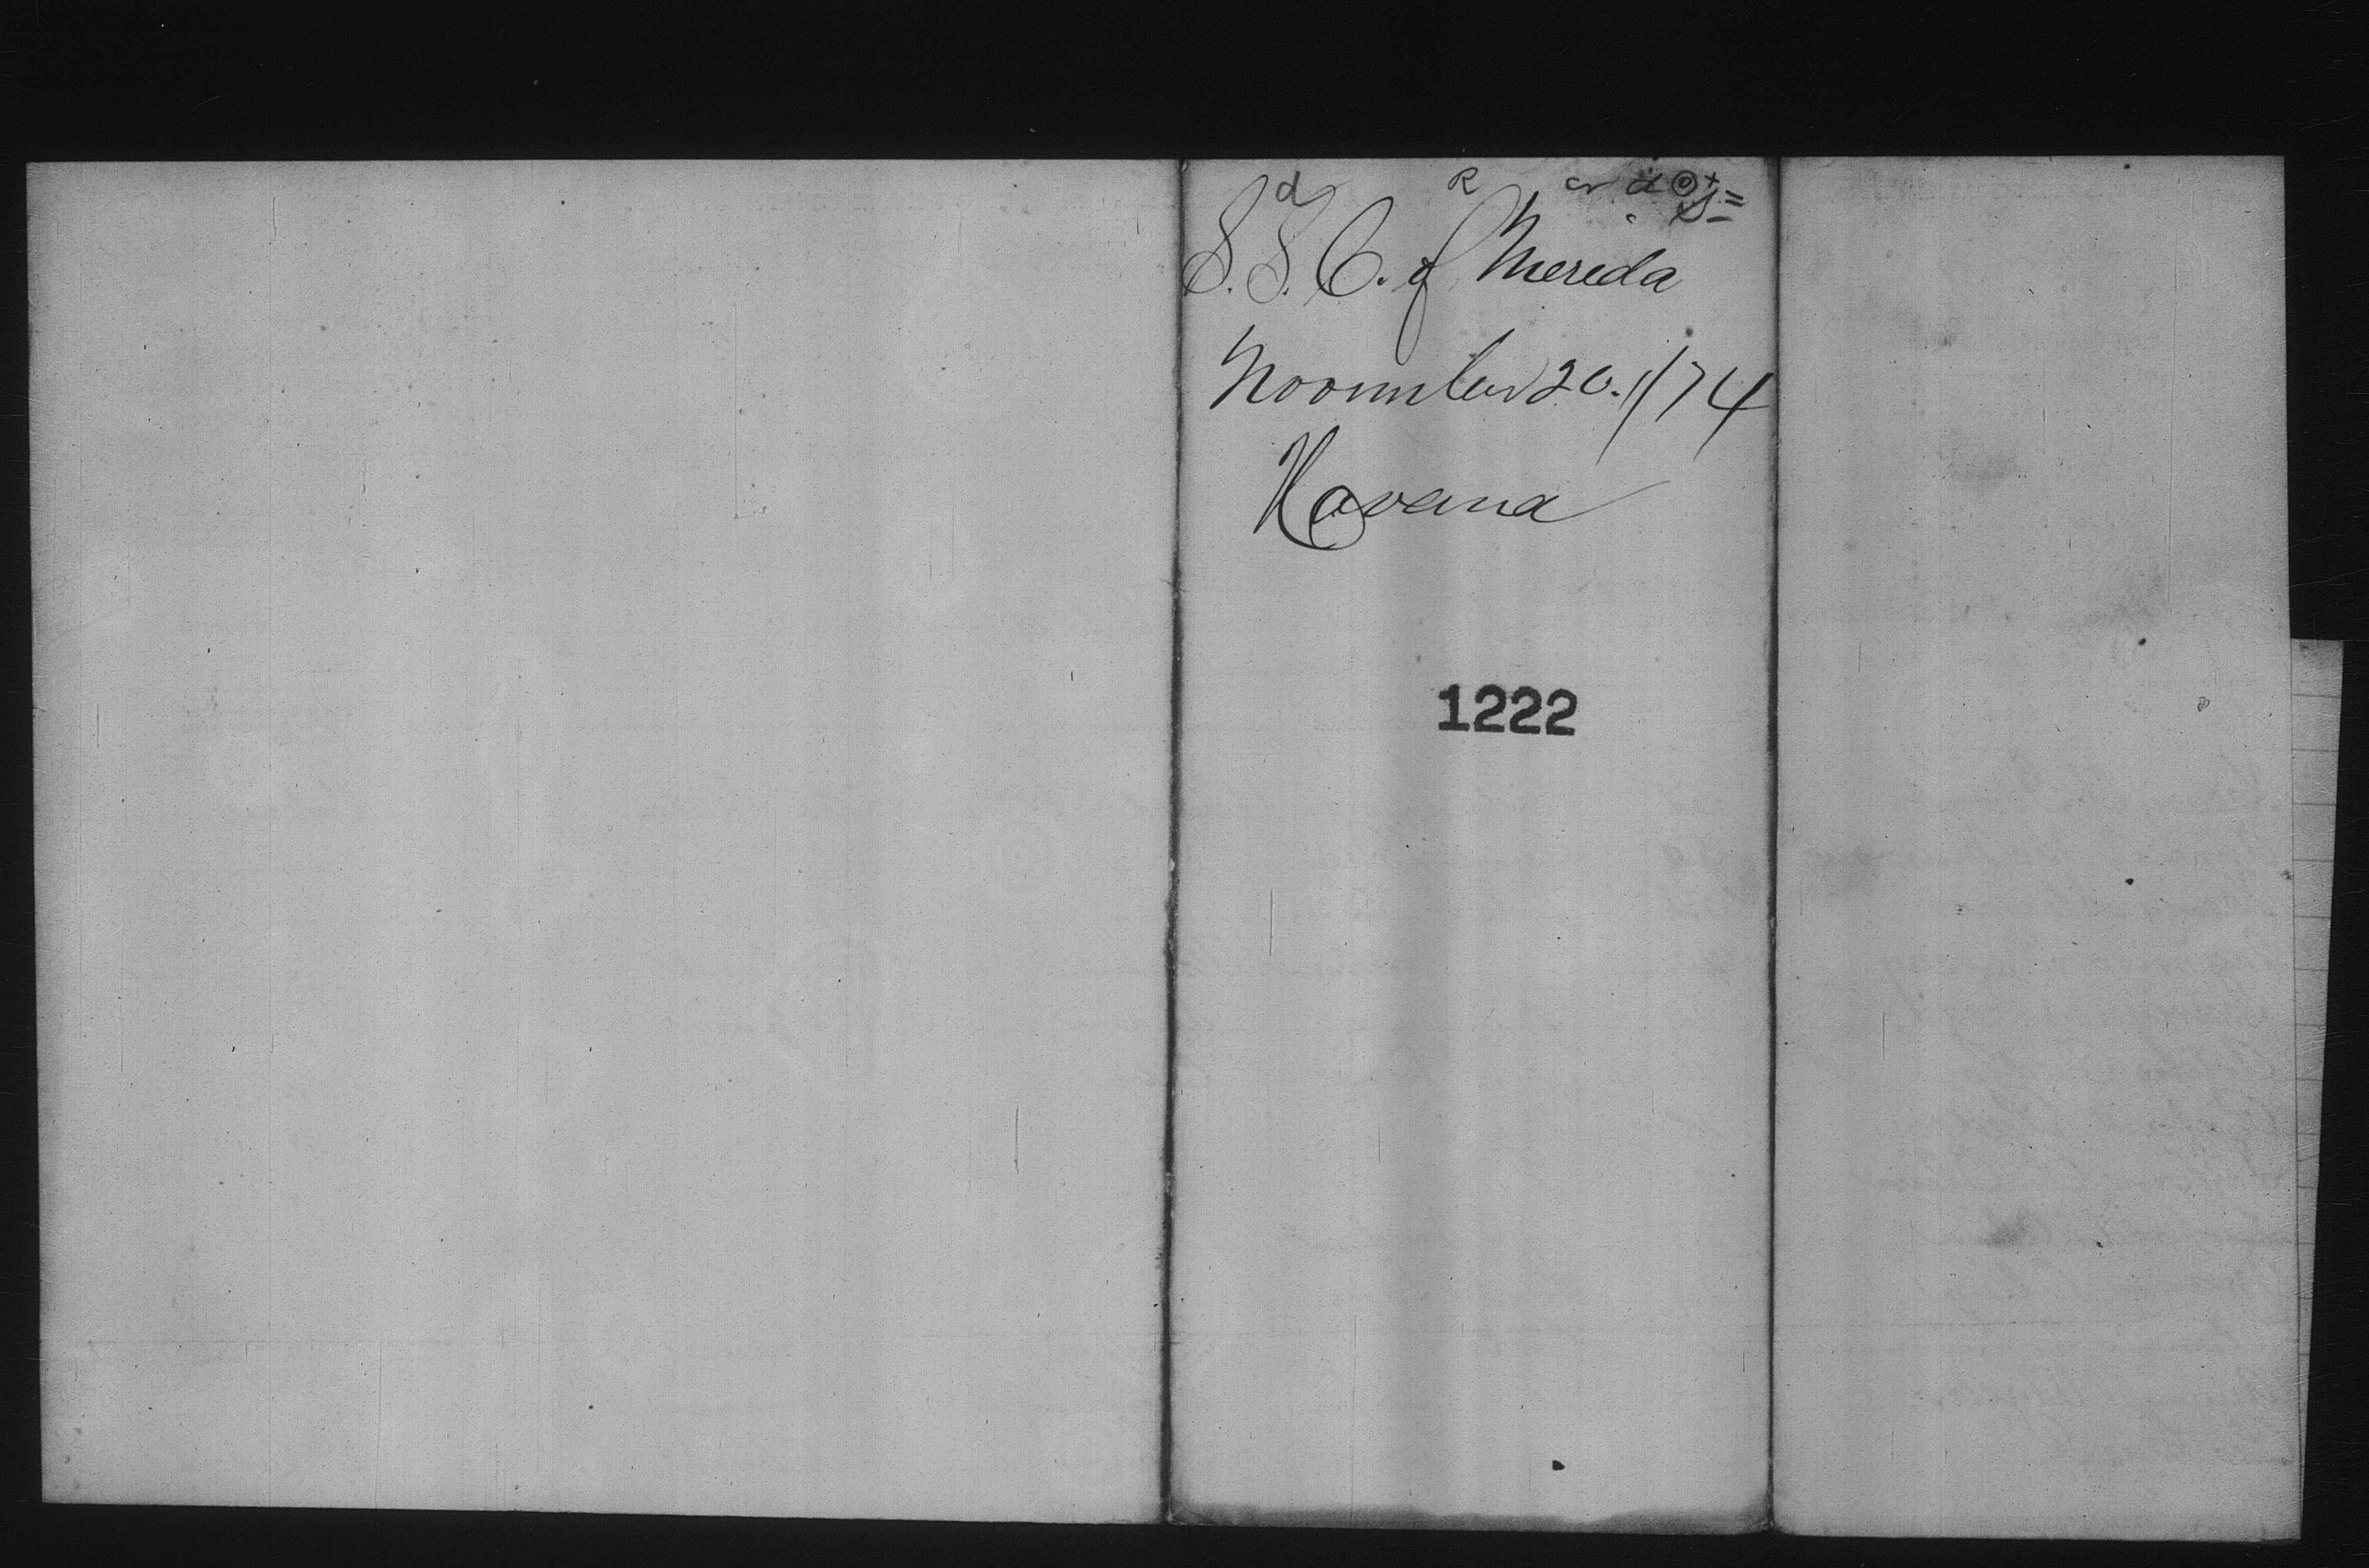 d R cr d
S. S. C. of Mereda
November 20. /74
Havana
1222